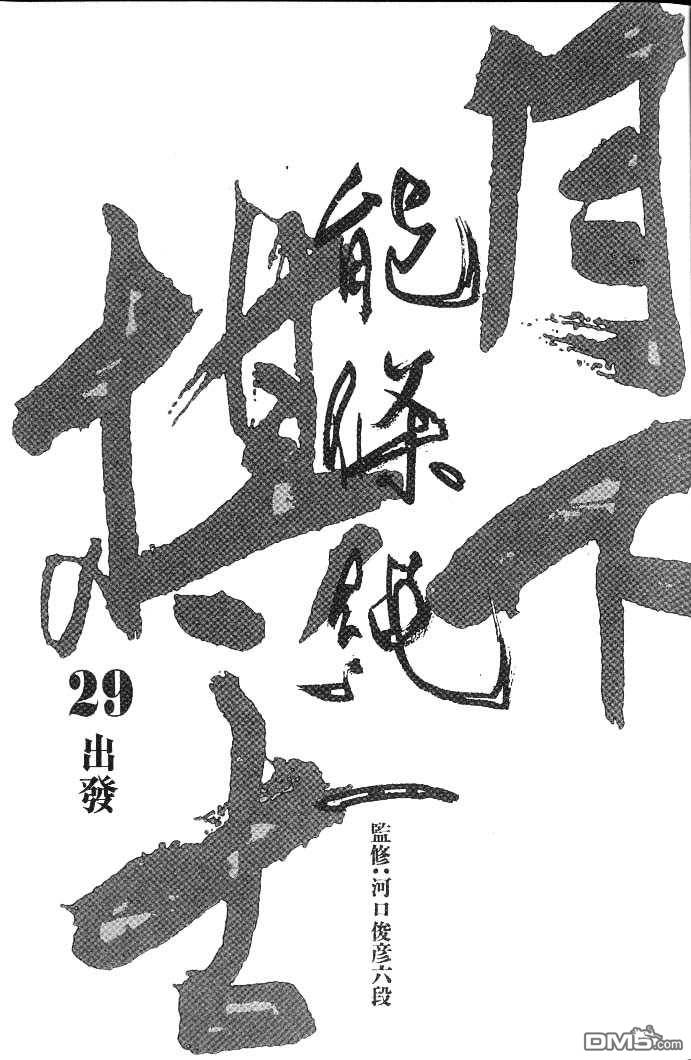 月下
棋士
能條純一
監修：河口俊彦六段
29
出發
DM5.com